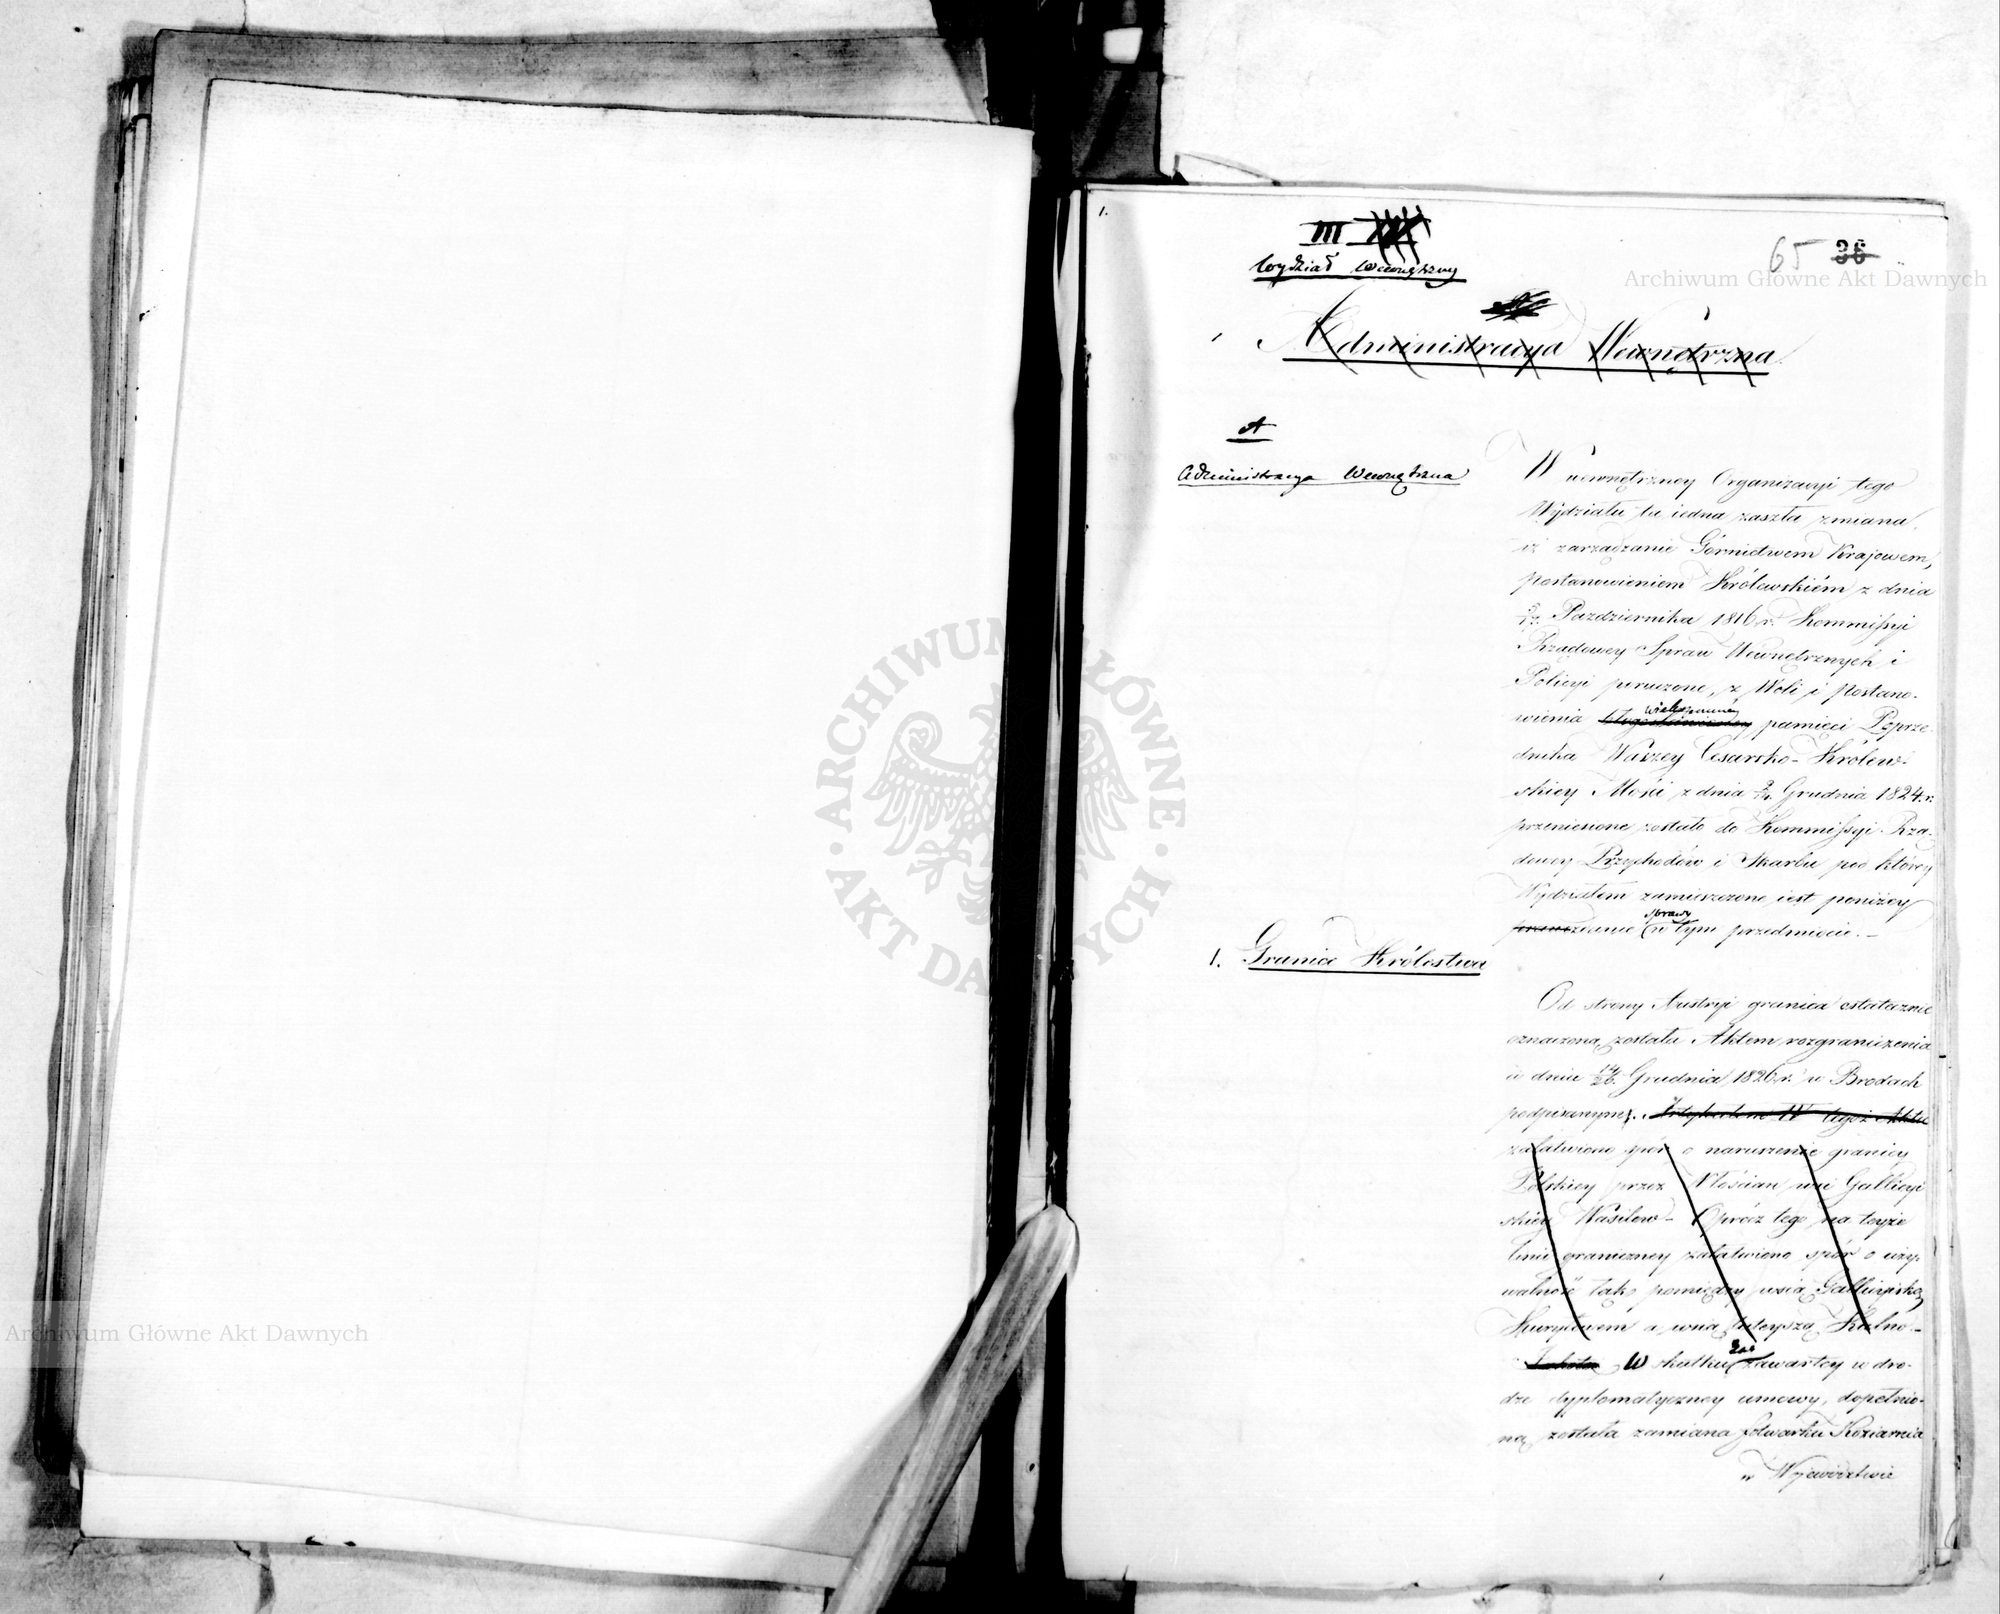 1.
III
Wydział Wewnętrzny
65 36
Administracya Wewnętrzna
A
Administracya Wewnętrzna
Wewnętrzney Organizacyi tego
Wydziału ta iedna zaszła zmiana,
iż zarządzanie Górnictwem Krajowem,
postanowieniem Królewskiém z dnia
Października 1816 r. Kommissyi
Rządowey Spraw Wewnętrznych i
Policyi poruczone, z Woli i Postano-
wienia wiekopomney pamięci Poprze-
dnika Waszey Cesarsko-Królew-
skiey Mości z dnia 2/14 Grudnia 1824 r.
przeniesione zostało do Kommissyi Rzą-
dowey Przychodów i Skarbu pod którey
Wydziałem zamieszczone iest poniżey
sprawo
zdanie w tym przedmiocie.
1. Granice Królestwa
Od strony Austryi granica ostatecznie
oznaczoną została Aktem rozgraniczenia
w dniu 14/26 Grudnia 1826 r. w Brodach
podpisanym. Artykułem IV tegoż Aktu
załatwiono spór o naruszenie granicy
Polskiey przez Włościan wsi Gallicyi
skiey Wasilow - Oprócz tego na teyże
linii graniczney załatwiono spór o uży-
walność łąk pomiędzy wsią Gallicyiską
a wsią tuteyszą
W skutku zaś zawartey w dro-
dze dyplomatyczney umowy, dopełnio-
ną została zamiana folwarku Koziarnia
w Województwie
Archiwum Główne Akt Dawnych
ARCHIWUM GŁÓWNE AKT DAWNYCH
Archiwum Główne Akt Dawnych